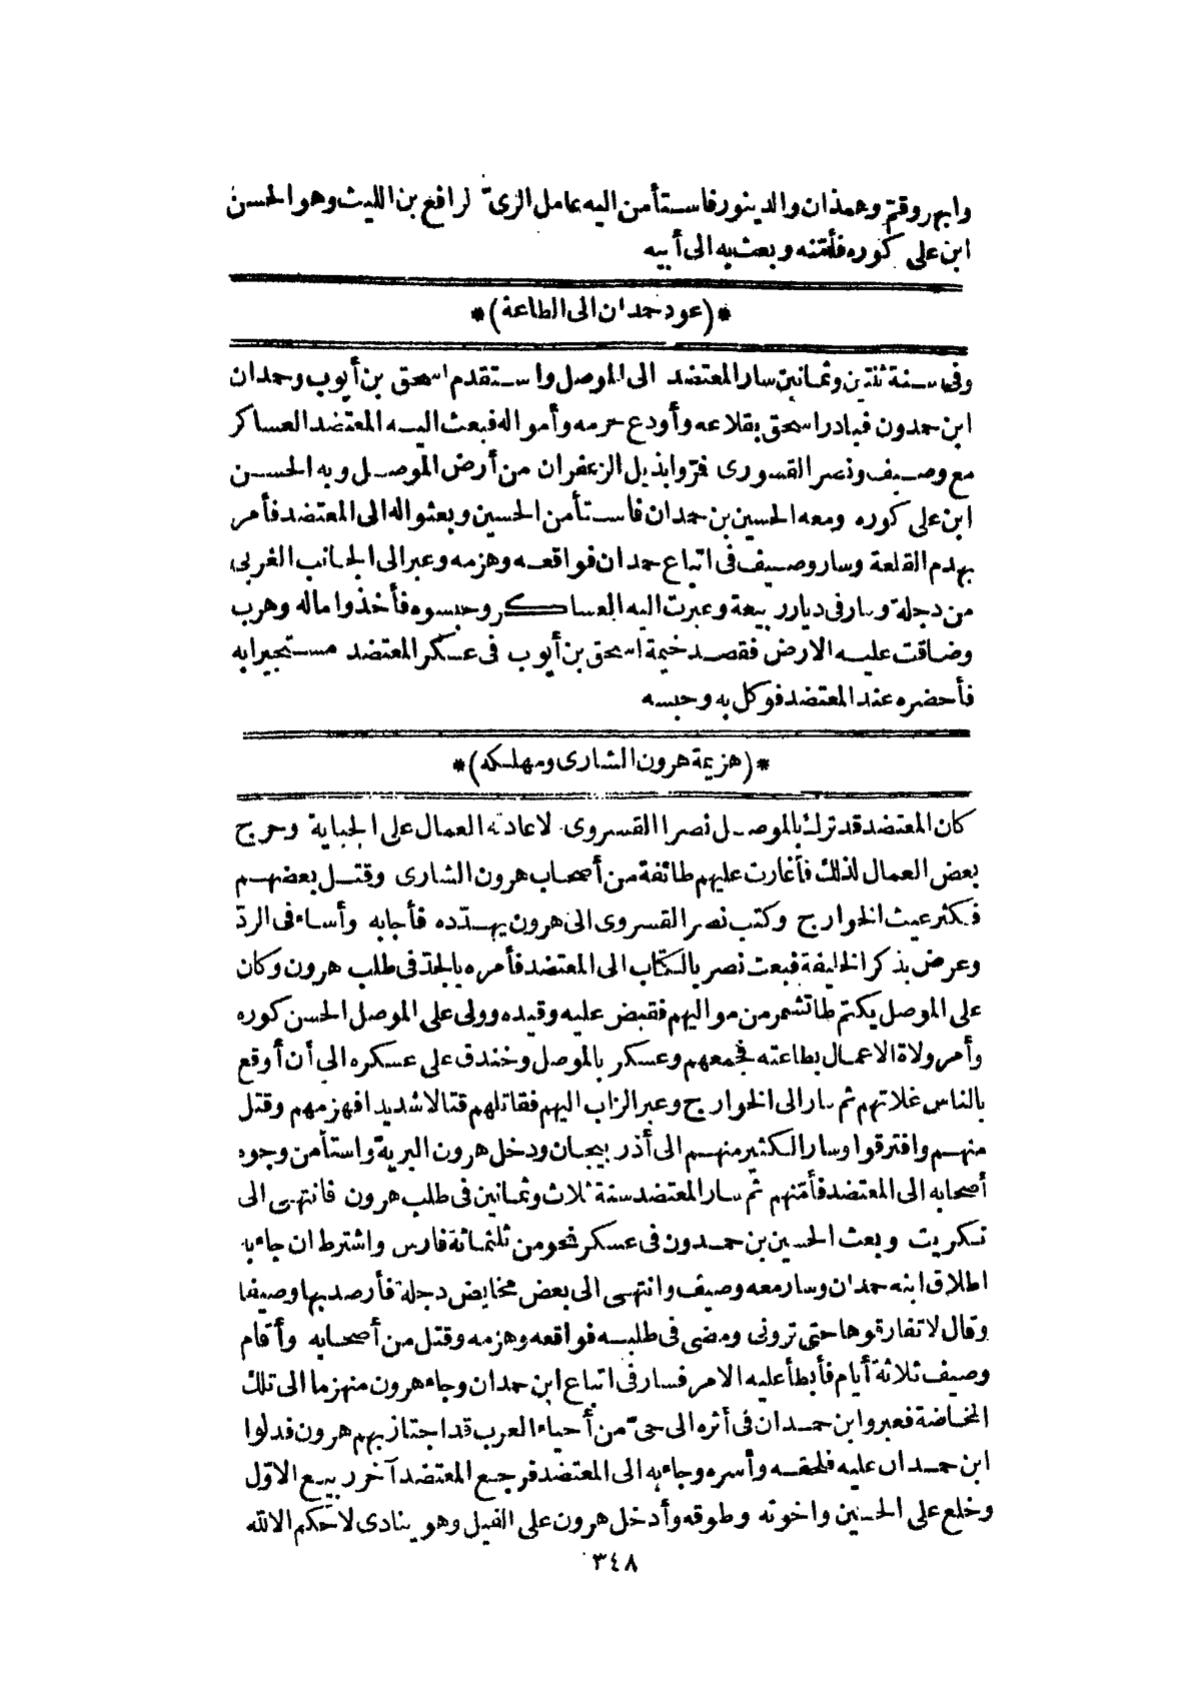 وابهر وقمّ وهمذان والدينور فاستأمن اليه عامل الرىّ لرافع بن الليث وهو الحسن
ابن على كوره فأمّنه وبعث به الى أبيه
*(عود حمدان الى الطاعة)*
وفى سنة ثنتين وثمانين سار المعتضد الى الموصل واستقدم اسحق بن أيوب وحمدان
ابن حمدون فبادر اسحق بقلاعه وأودع حرمه وأمواله فبعث اليه المعتضد العساكر
مع وصيف ونصر القسورى فمرّوا بذيل الزعفران من أرض الموصل وبه الحسن
ابن على كوره ومعه الحسين بن حمدان فاستأمن الحسين وبعثوا له الى المعتضد فأمر
بهدم القلعة وسار وصيف فى اتباع حمدان فواقعه وهزمه وعبر الى الجانب الغربى
من دجلة وسار فى ديار ربيعة وعبرت اليه العساكر وحبسوه فأخذوا ماله وهرب
وضاقت عليه الارض فقصد خيمة اسحق بن أيوب فى عسكر المعتضد مستجيرا به
فأحضره عند المعتضد فوكل به وحبسه
*(هزيمة هرون الشارى ومهلكه)*
كان المعتضد قد ترك بالموصل نصرا القسروى لاعادته العمال على الجباية وخرج
بعض العمال لذلك فأغارت عليهم طائفة من أصحاب هرون الشارى وقتل بعضهم
فكثر عيث الخوارج وكتب نصر القسروى الى هرون يهدّده فأجابه وأساء فى الردّ
وعرض بذكر الخليفة فبعث نصر بالكتاب الى المعتضد فأمره بالجدّ فى طلب هرون وكان
على الموصل يكتم طاتشمر من مواليهم فقبض عليه وقيده وولى على الموصل الحسن كوره
وأمر ولاة الاعمال بطاعته فجمعهم وعسكر بالموصل وخندق على عسكره الى أن أوقع
بالناس غلاتهم ثم سار الى الخوارج وعبر الزاب اليهم فقاتلهم قتالا شديدا فهزمهم وقتل
منهم وافترقوا وسار الكثير منهم الى أذربيجان ودخل هرون البرية واستأمن وجوه
أصحابه الى المعتضد فأمّنهم ثم سار المعتضد سنة ثلاث وثمانين فى طلب هرون فانتهى الى
تكريت وبعث الحسين بن حمدون فى عسكر نحو من ثلثمائة فارس واشترط ان جاء به
اطلاق ابنه حمدان وسار معه وصيف وانتهى الى بعض مخايض دجلة فأرصد بها وصيفا
وقال لا تفارقوها حتى ترونى ومضى فى طلبه فواقعه وهزمه وقتل من أصحابه وأقام
وصيف ثلاثة أيام فأبطأ عليه الامر فسار فى اتباع ابن حمدان وجاء هرون منهزما الى تلك
المخاضة فعبر وابن حمدان فى أثره الى حىّ من أحياء العرب قد اجتاز بهم هرون فدلوا
ابن حمدان عليه فلحقه وأسره وجاء به الى المعتضد فرجع المعتضد آخر ربيع الاوّل
وخلع على الحسين واخوته وطوقه وأدخل هرون على الفيل وهو ينادى لا حكم الا لله
٣٤٨